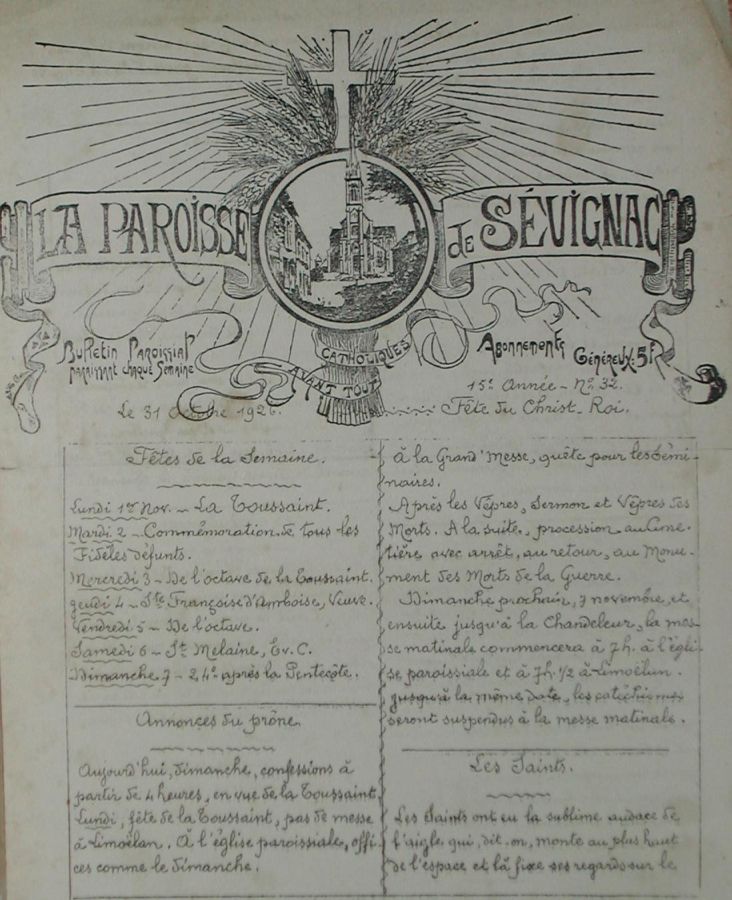 LA PAROISSE de SÉVIGNAC
Bulletin Paroissial
paraissant chaque semaine
CATHOLIQUES
AVANT TOUT
Abonnements Généreux: 5f
15e Année - No 32.
Le 31 Octobre 1926.
Fête du Christ-Roi.
Fêtes de la Semaine.
Lundi 1er Nov. - La Toussaint.
Mardi 2 - Commémoration de tous les
Fidèles défunts.
Mercredi 3 - De l'octave de la Toussaint.
Jeudi 4 - Ste Françoise d'Amboise, Veuve.
Vendredi 5 - De l'octave.
Samedi 6 - St Melaine, Ev. C.
Dimanche 7 - 24e après la Pentecôte.
Annonces du prône.
Aujourd'hui, dimanche, confessions à
partir de 4 heures, en vue de la Toussaint.
Lundi, fête de la Toussaint, pas de messe
à Limoëlan. À l'église paroissiale, offi-
ces comme le dimanche.
à la Grand'Messe, quête pour les Sémi-
naires.
Après les Vêpres, Sermon et Vêpres des
Morts. A la suite, procession au Cime-
tière avec arrêt, au retour, au Monu-
ment des Morts de la Guerre.
Dimanche prochain, 7 novembre, et
ensuite jusqu'à la Chandeleur, la mes-
se matinale commencera à 7h. à l'égli-
se paroissiale et à 7h.1/2 à Limoëlan.
Jusqu'à la même date, les catéchismes
seront suspendus à la messe matinale.
Les Saints.
Les Saints ont eu la sublime audace de
l'aigle qui, dit-on, monte au plus haut
de l'espace et là fixe ses regards sur le